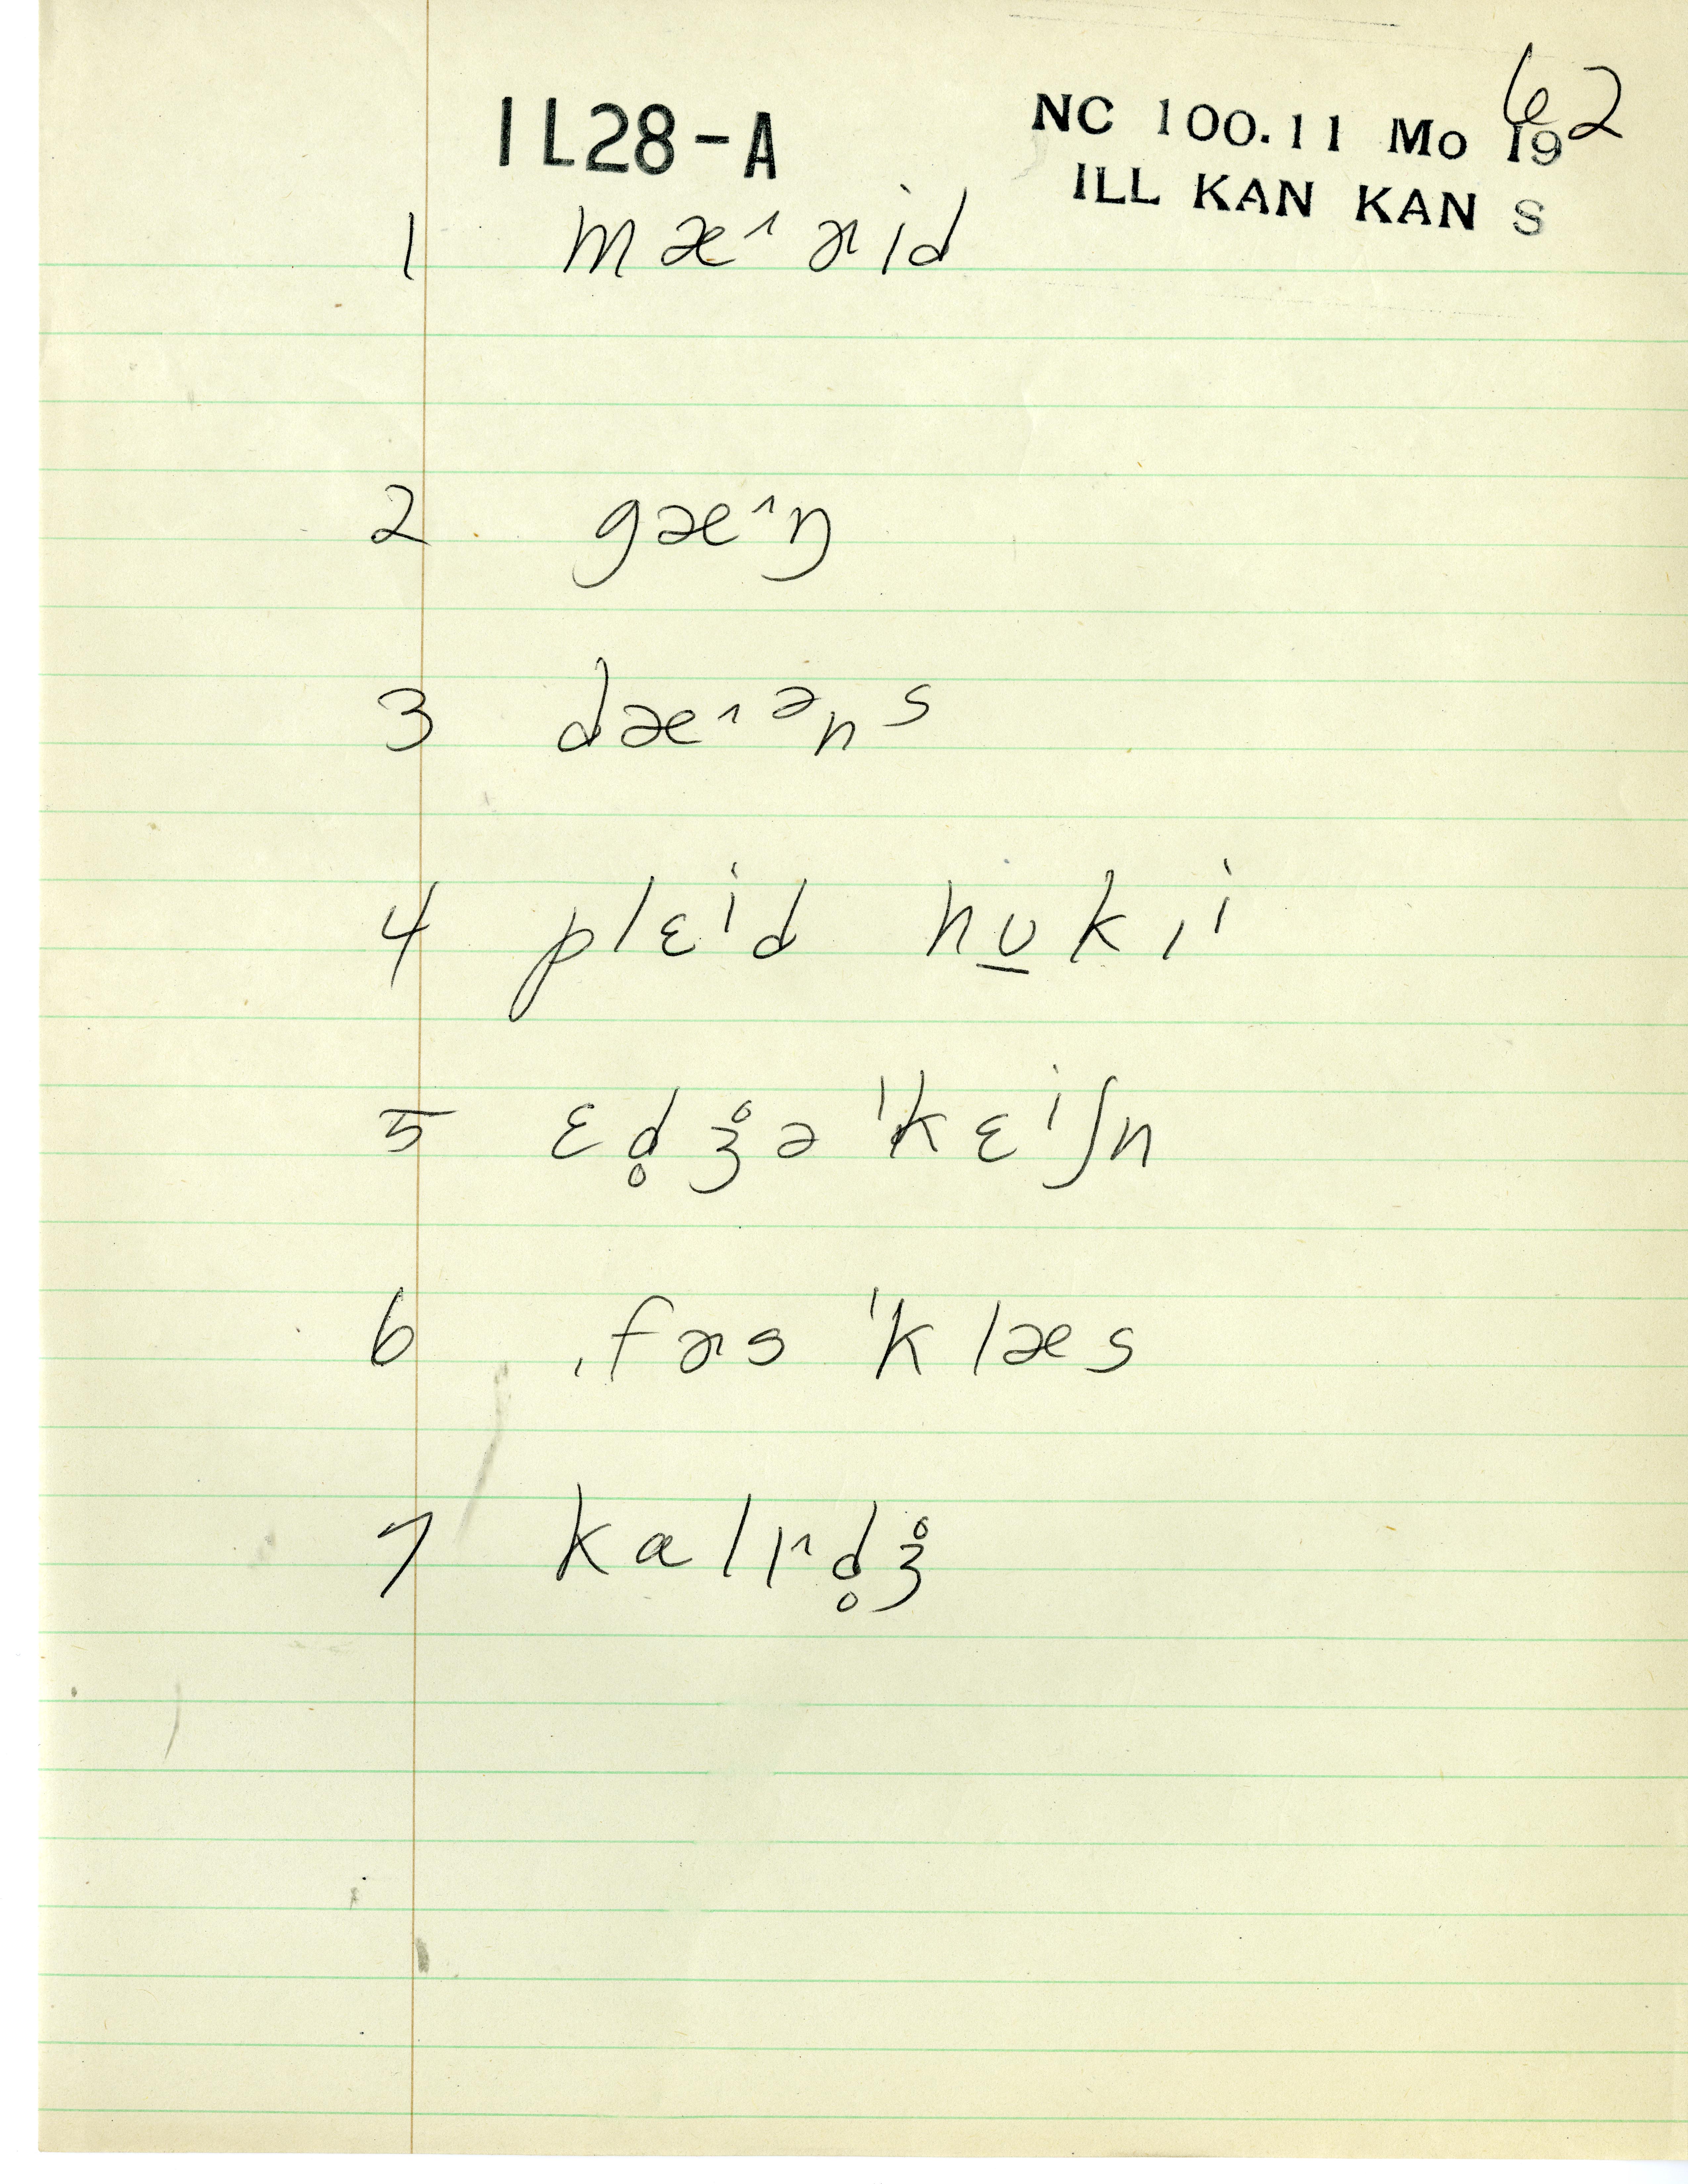 IL28-A
NC 100.11 Mo 1962
ILL KAN KAN S
1 mæ˄ɚid
2 gæ˄ŋ
3 dæ˄ᵊnˢ
4 plɛⁱd hu̲kɪⁱ
5 ɛd̥ʒ̊ə'kɛⁱʃn
6 ˌfɚs 'klæs
7 kalɪ˄d̥ʒ̊